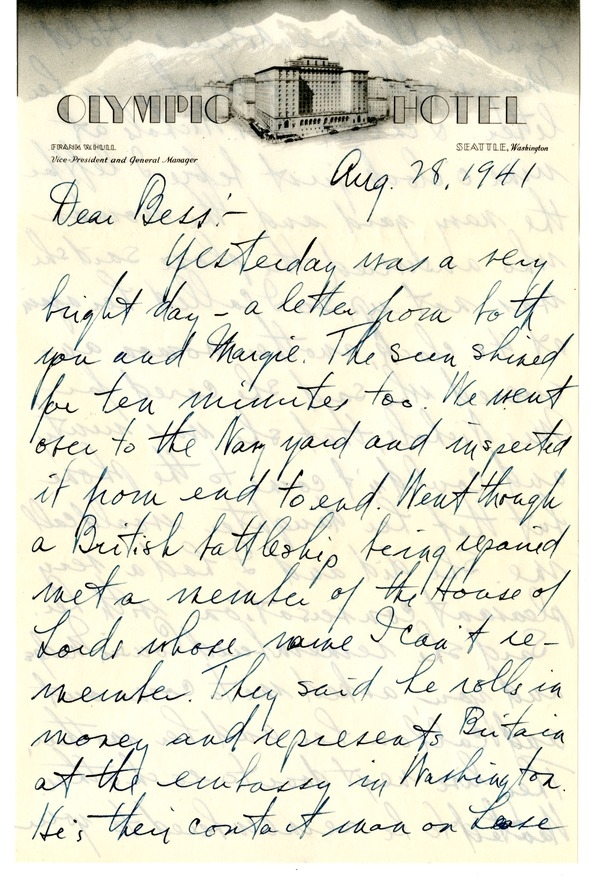 OLYMPIC HOTEL
FRANK W. HULL
Vice-President and General Manager
SEATTLE, Washington
Aug. 28, 1941
Dear Bess:-
Yesterday was a very
bright day - a letter from both
you and Margie. The sun shined
for ten minutes too. We went
over to the Navy yard and inspected
it from end to end. Went though
a British battleship being repaired
met a member of the House of
Lords whose name I can't re-
member. They said he rolls in
money and represents Britain
at the embassy in Washington.
He's their contact man on Lease